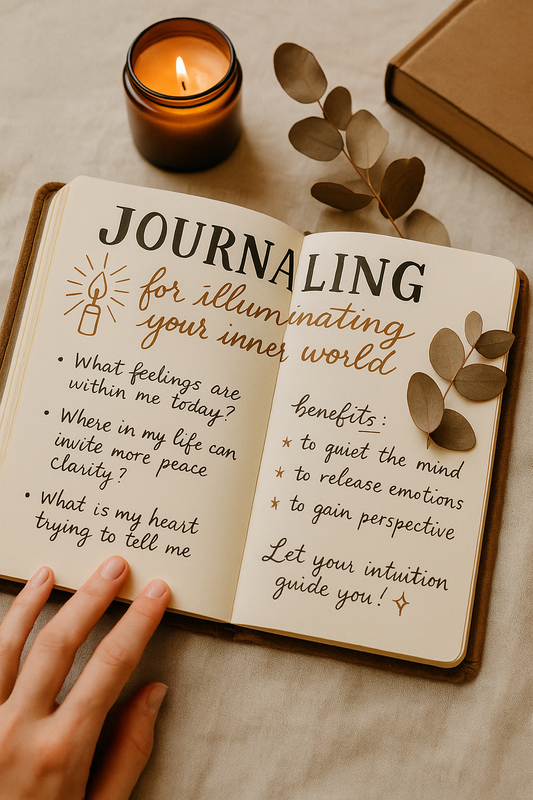 JOURNALING
for illuminating
your inner world
• What feelings are
within me today?
• Where in my life can
invite more peace
clarity?
• What is my heart
trying to tell me
benefits:
* to quiet the mind
* to release emotions
* to gain perspective
Let your intuition
guide you!